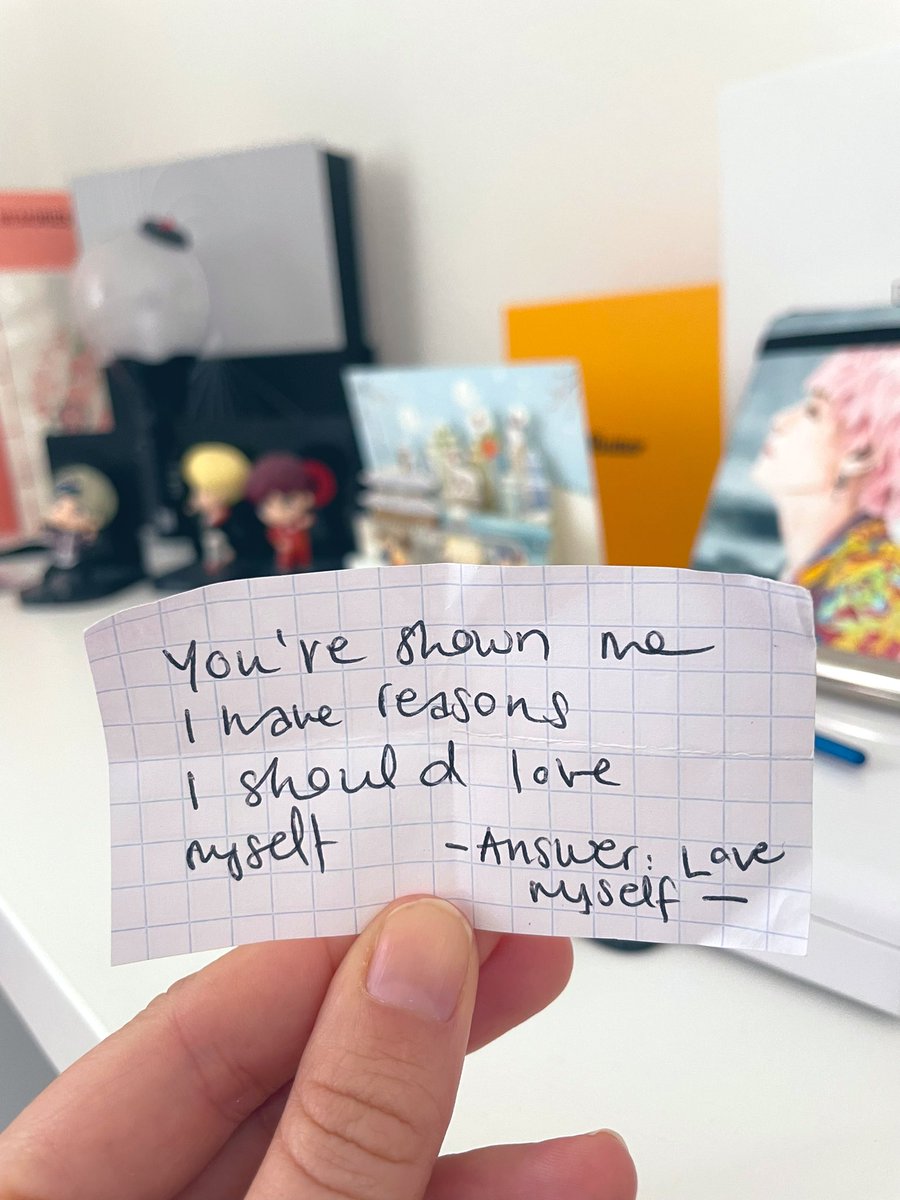 You've shown me
I have reasons
I should love
myself
- Answer: Love
myself —